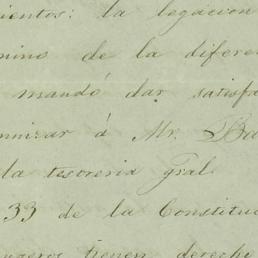 ientos: la legacion
mino de la difere
mandó dar satisfa
mnizar á Mr. Ba
la tesoreria gral
33 de la Constituc
ngeros tienen derecho